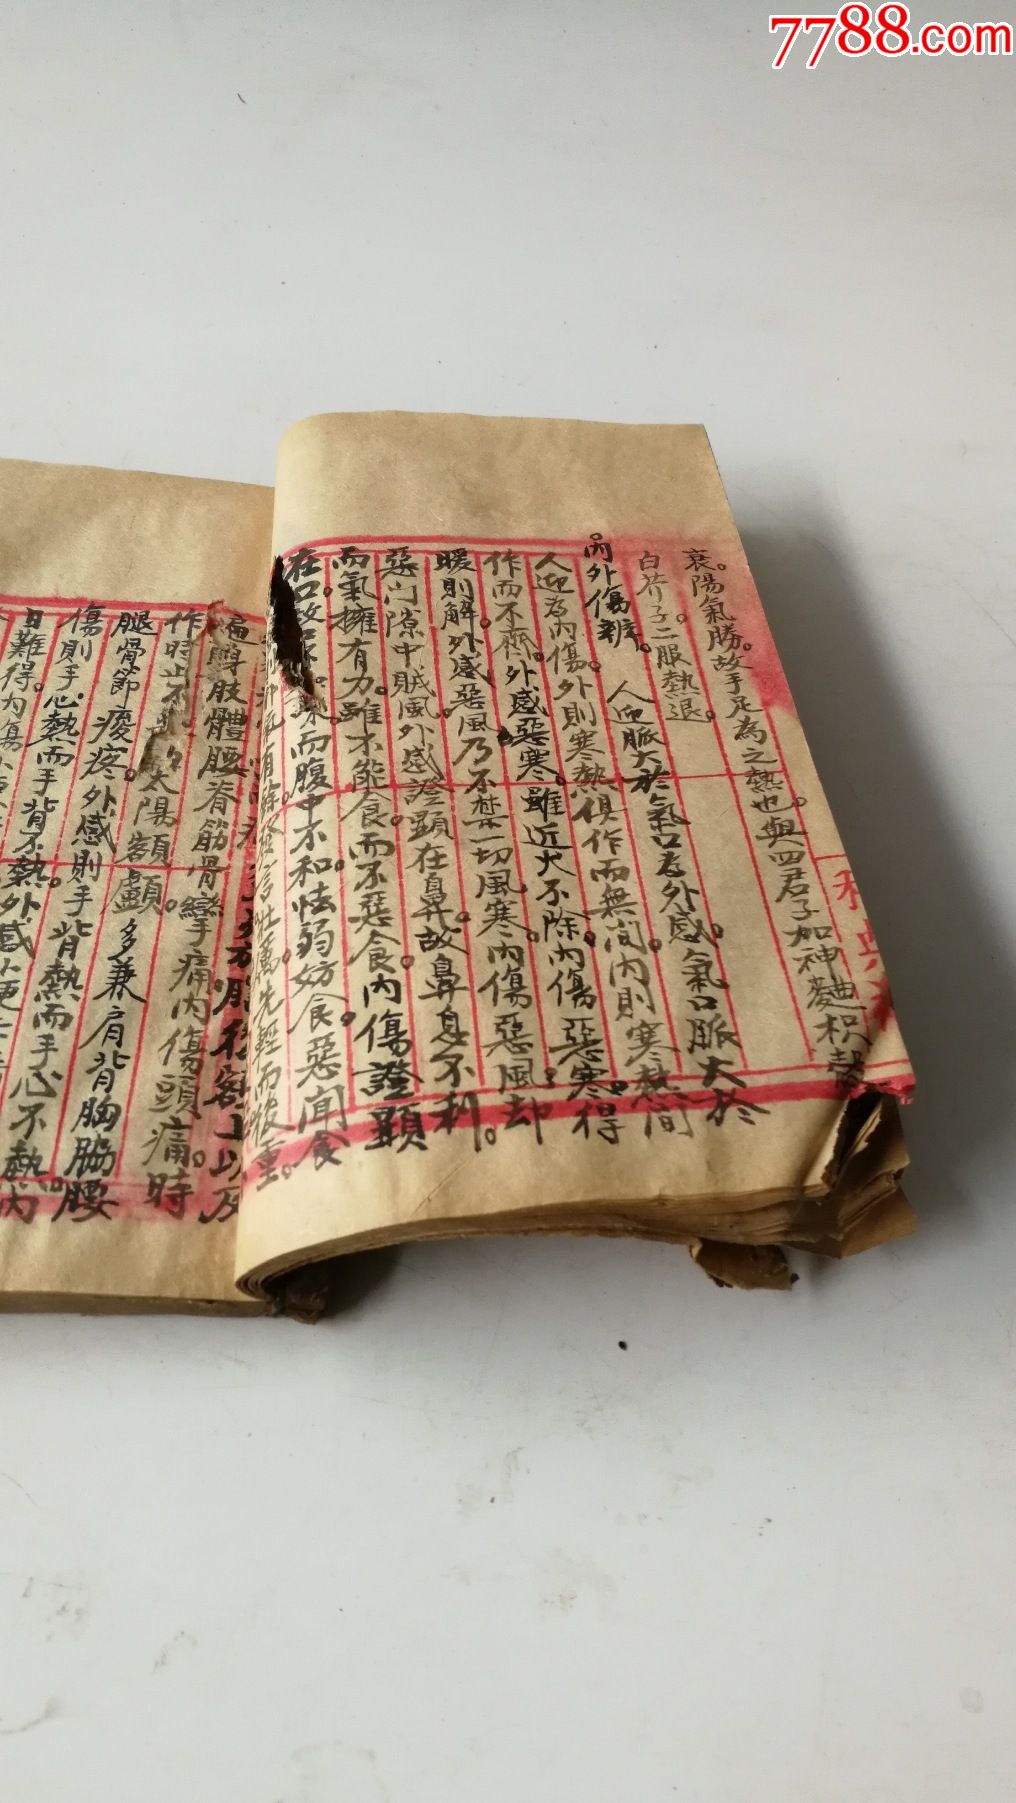 7788.com
衰。陽氣勝。故手足為之熱也。與四君子加神麯枳
白芥子。二服熱退。
內外傷辨。 人迎脈大於氣口為外感。氣口脈大於
人迎為內傷。外則寒熱俱作而無間。內則寒熱間
作而不齊。外感惡寒。雖近火不除。內傷惡寒。得
暖則解。外感惡風。乃不禁一切風寒。內傷惡風。却
惡門隙中賊風。外感證顯在鼻。故鼻息不利。
而氣擁有力。雖不能食。而不惡食。內傷證顯
在口。故口 而腹中不和。怯弱妨食。惡聞食
有餘。發言壯厲。先輕而後重。
額上以及
徧身肢體腰脊筋骨攣痛。內傷頭痛。時
作時止不 太陽額顱。多兼肩背胸脇腰
腿骨節痠疼。外感則手背熱而手心不熱。內
傷則手心熱而手背不熱。外感
日難得。內傷